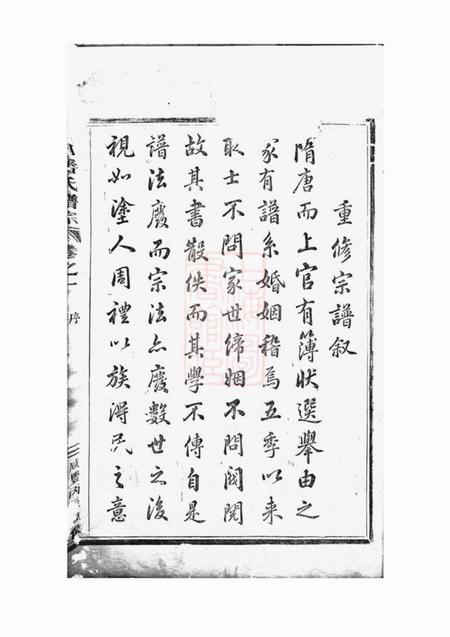 重修宗譜叙
隋唐而上官有簿狀選舉由之
家有譜系婚姻稽焉五季以来
取士不問家世締姻不問閥閱
故其書散佚而其學不傳自是
譜法廢而宗法亦廢數世之後
視如塗人周禮以族得民之意
潘氏譜宗 卷之一 序